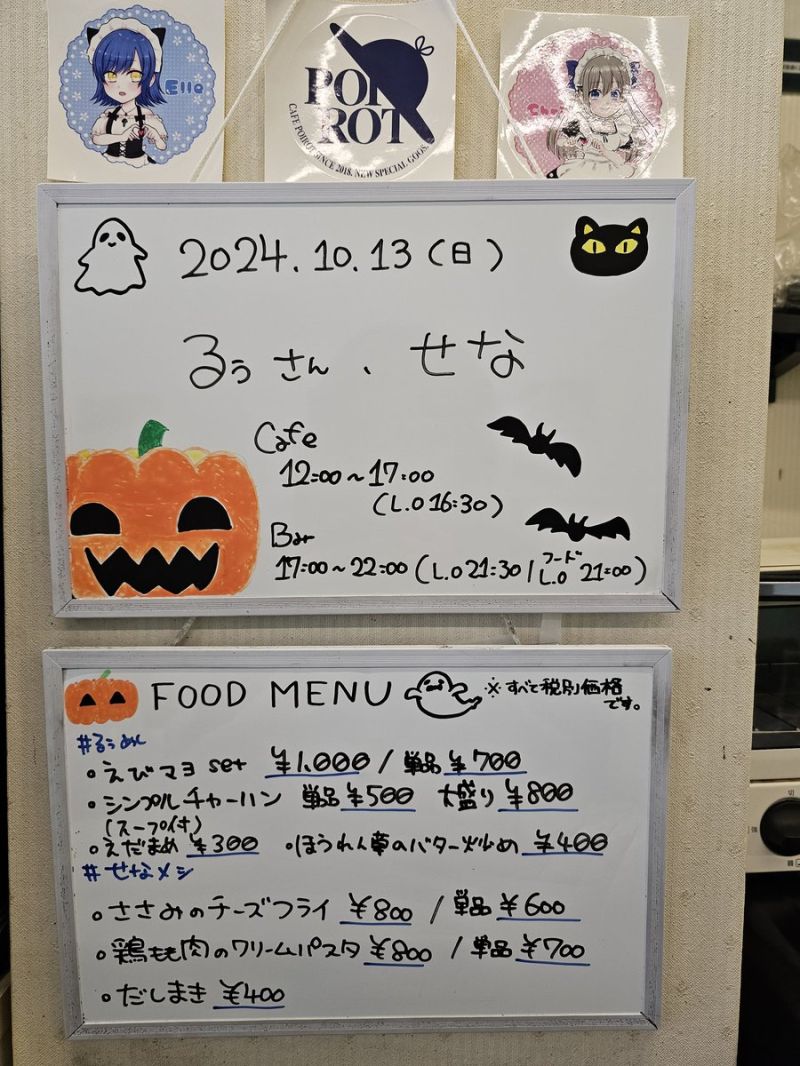 Ella
POI
ROT
CAFE POIROT SINCE 2018. NEW SPECIAL GOOS.
2024.10.13(日)
るぅさん、せな
Cafe
12:00~17:00
(L.O 16:30)
Bar
17:00~22:00 (L.O 21:30/フードL.O 21:00)
FOOD MENU ※すべて税別価格です。
#るぅめし
・えびマヨ set ¥1,000 / 単品 ¥700
・シンプルチャーハン 単品 ¥500 大盛り ¥800
(スープ付)
・えだまめ ¥300 ・ほうれん草のバター炒め ¥400
#せなメシ
・ささみのチーズフライ ¥800 / 単品 ¥600
・鶏もも肉のクリームパスタ ¥800 / 単品 ¥700
・だしまき ¥400
切